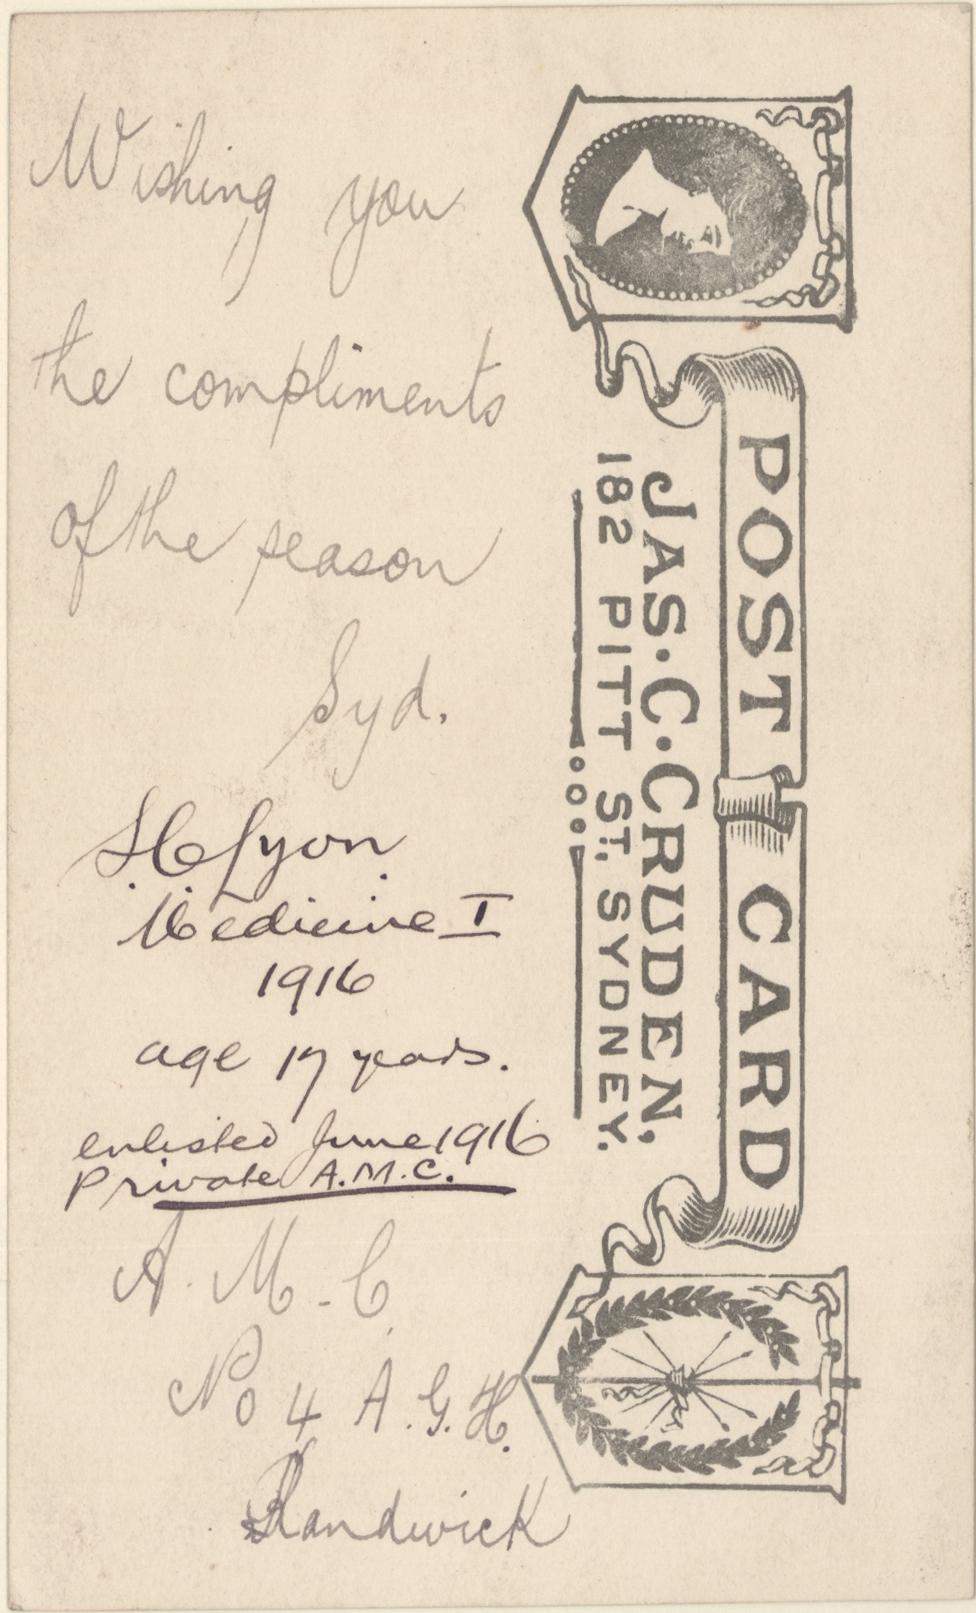 Wishing you
the compliments
of the season
Syd.
H C Lyon
Medicine I
1916
age 17 years.
enlisted June 1916
Private A.M.C.
A.M.C
No 4 A.G.H.
Randwick
POST CARD
JAS. C. CRUDEN,
182 PITT ST, SYDNEY.